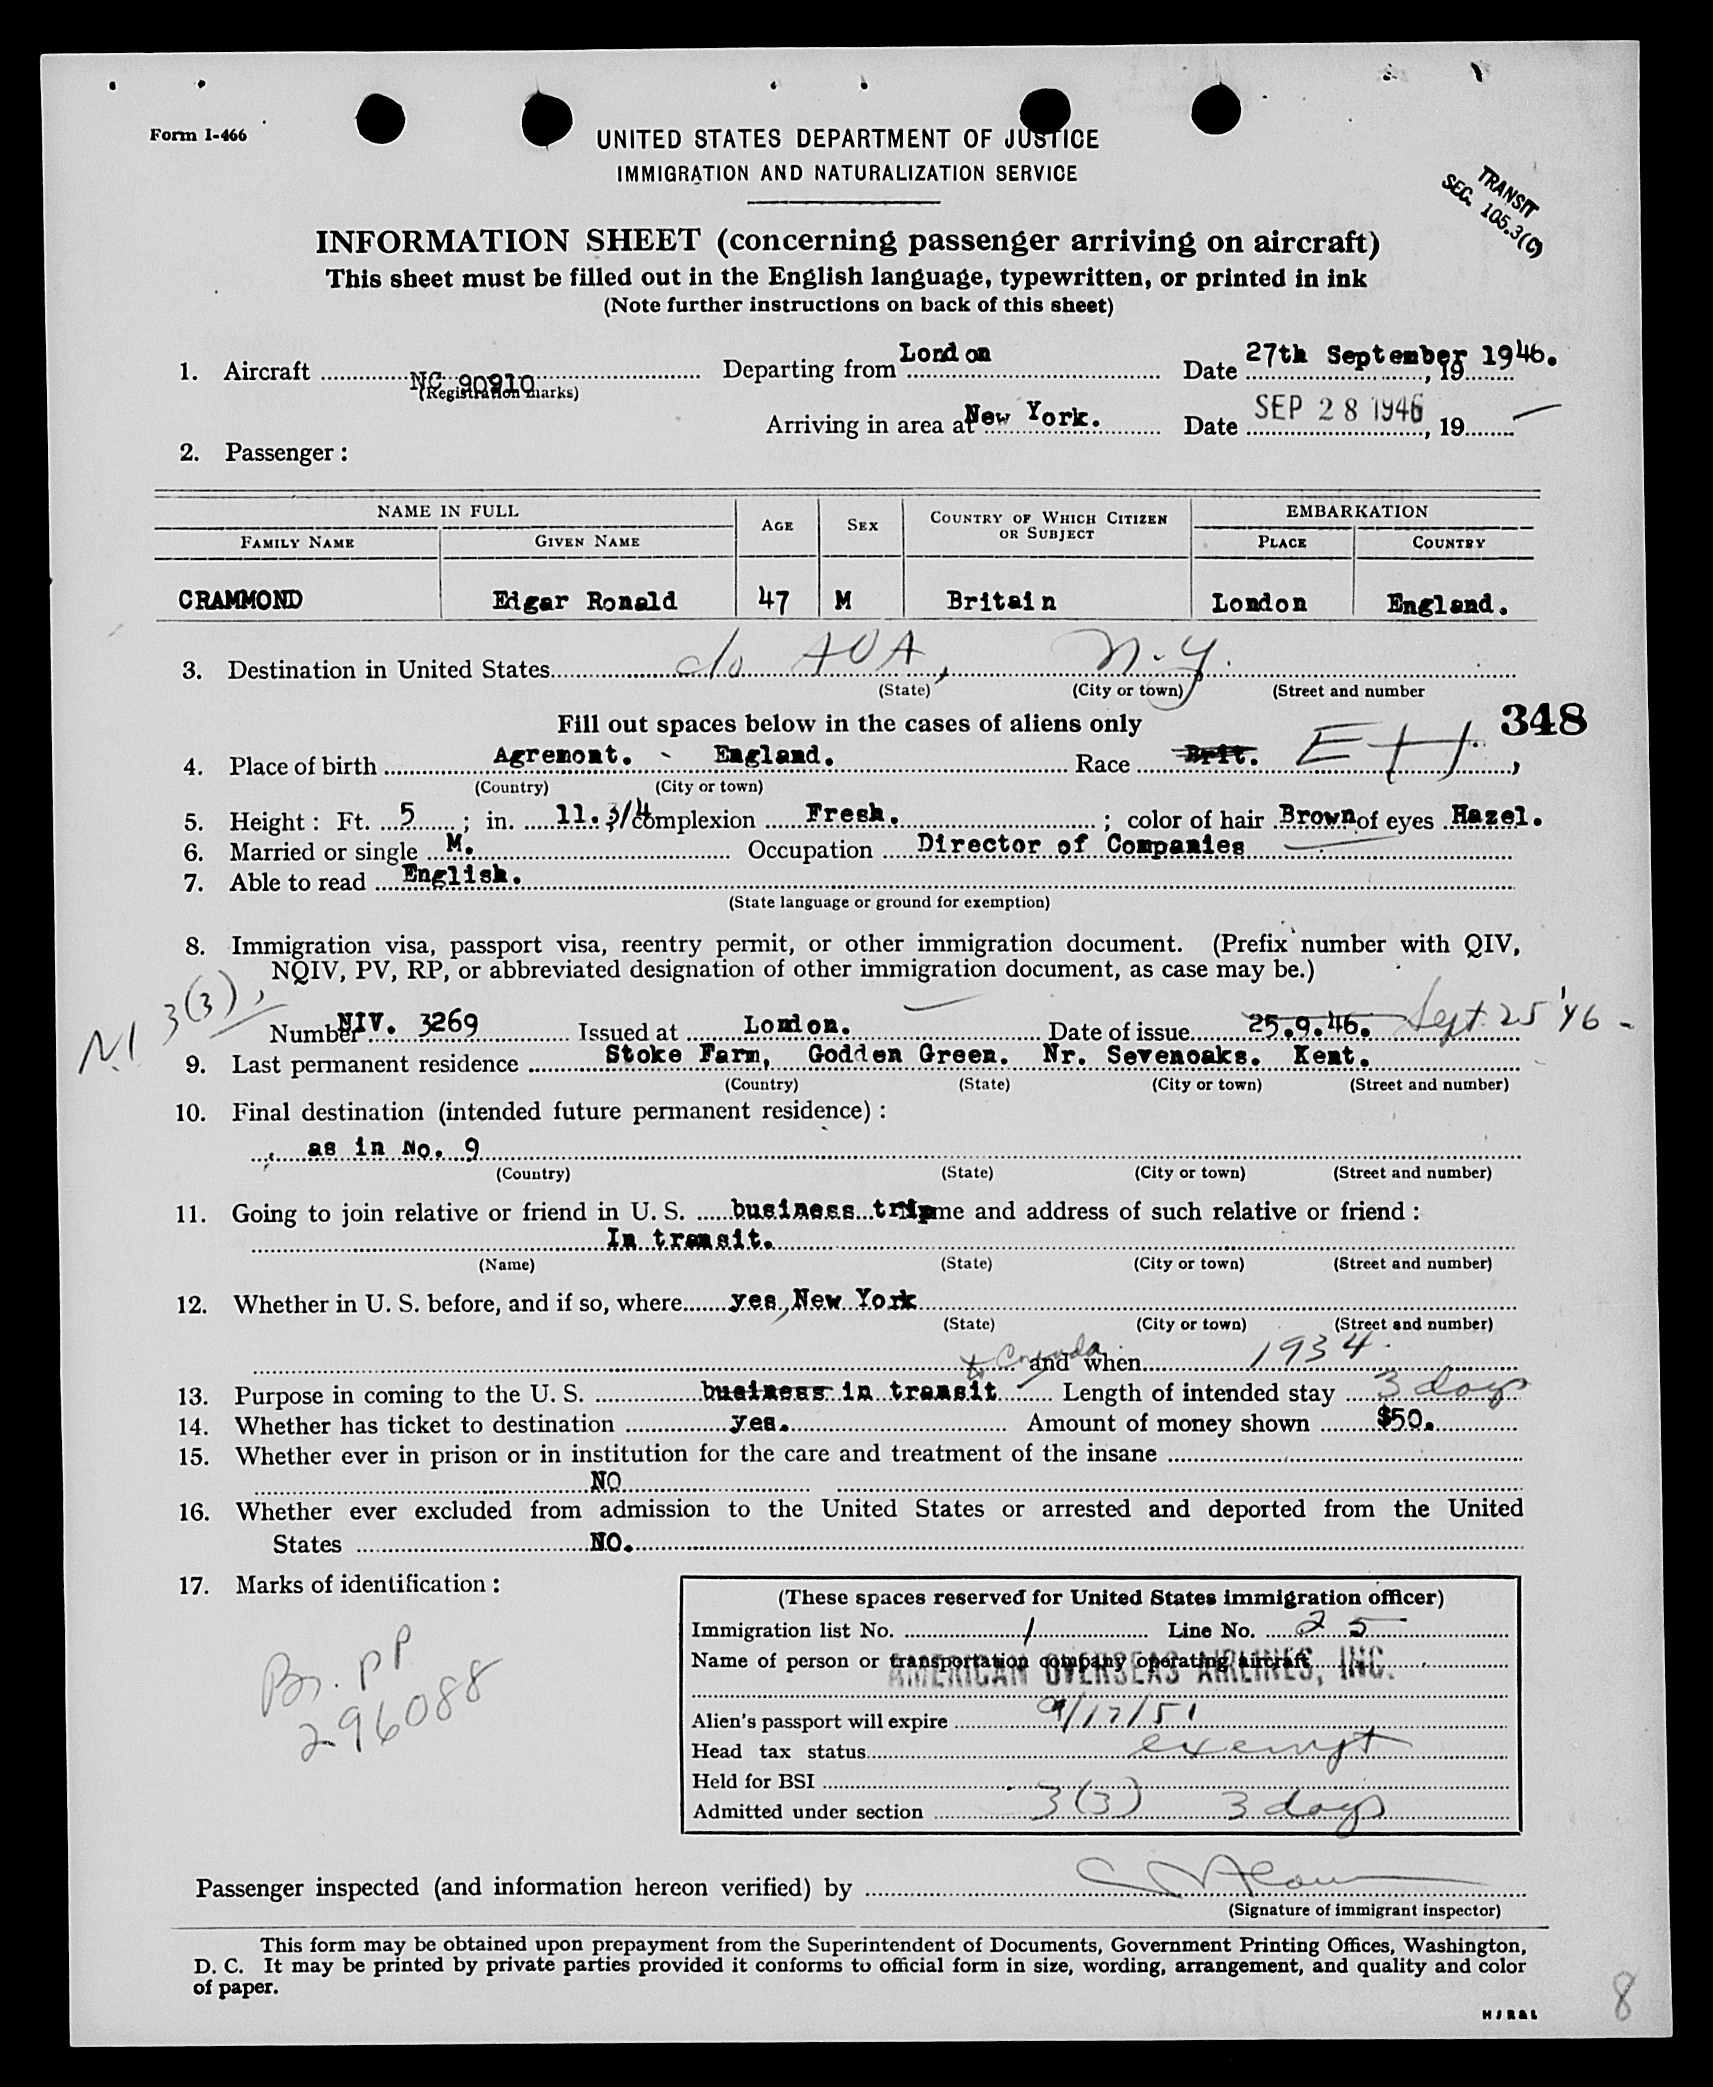 Form I-466
UNITED STATES DEPARTMENT OF JUSTICE
IMMIGRATION AND NATURALIZATION SERVICE
TRANSIT
SEC. 105.3(C)
INFORMATION SHEET (concerning passenger arriving on aircraft)
This sheet must be filled out in the English language, typewritten, or printed in ink
(Note further instructions on back of this sheet)
1. Aircraft NC 90910 Departing from London Date 27th September 1946., 19
(Registration marks)
Arriving in area at New York. Date SEP 28 1946, 19
2. Passenger :
NAME IN FULL AGE SEX COUNTRY OF WHICH CITIZEN OR SUBJECT EMBARKATION
FAMILY NAME GIVEN NAME PLACE COUNTRY
CRAMMOND Edgar Ronald 47 M Britain London England.
3. Destination in United States c/o AOA, N.Y.
(State) (City or town) (Street and number
Fill out spaces below in the cases of aliens only 348
4. Place of birth Agremont. - England. Race Brit.
(Country) (City or town)
5. Height : Ft. 5 ; in. 11. 3/4 complexion Fresh. ; color of hair Brown of eyes Hazel.
6. Married or single M. Occupation Director of Companies
7. Able to read English.
(State language or ground for exemption)
8. Immigration visa, passport visa, reentry permit, or other immigration document. (Prefix number with QIV,
NQIV, PV, RP, or abbreviated designation of other immigration document, as case may be.)
NI 3(3)
Number NIV. 3269 Issued at London. Date of issue 25.9.46. Sept. 25 '46
9. Last permanent residence Stoke Farm, Godden Green. Nr. Sevenoaks. Kent.
(Country) (State) (City or town) (Street and number)
10. Final destination (intended future permanent residence) :
as in No. 9
(Country) (State) (City or town) (Street and number)
11. Going to join relative or friend in U. S. business trip me and address of such relative or friend :
In transit.
(Name) (State) (City or town) (Street and number)
12. Whether in U. S. before, and if so, where yes, New York
(State) (City or town) (Street and number)
& Canada and when 1934.
13. Purpose in coming to the U. S. business in transit Length of intended stay 3 days
14. Whether has ticket to destination yes. Amount of money shown $50.
15. Whether ever in prison or in institution for the care and treatment of the insane
NO
16. Whether ever excluded from admission to the United States or arrested and deported from the United
States NO.
17. Marks of identification :
Br. PP
296088
(These spaces reserved for United States immigration officer)
Immigration list No. 1 Line No. 25
Name of person or transportation company operating aircraft
AMERICAN OVERSEAS AIRLINES, INC.
Alien's passport will expire 9/17/51
Head tax status exempt
Held for BSI
Admitted under section 3(3) 3 days
Passenger inspected (and information hereon verified) by
(Signature of immigrant inspector)
This form may be obtained upon prepayment from the Superintendent of Documents, Government Printing Offices, Washington,
D. C. It may be printed by private parties provided it conforms to official form in size, wording, arrangement, and quality and color
of paper.
8